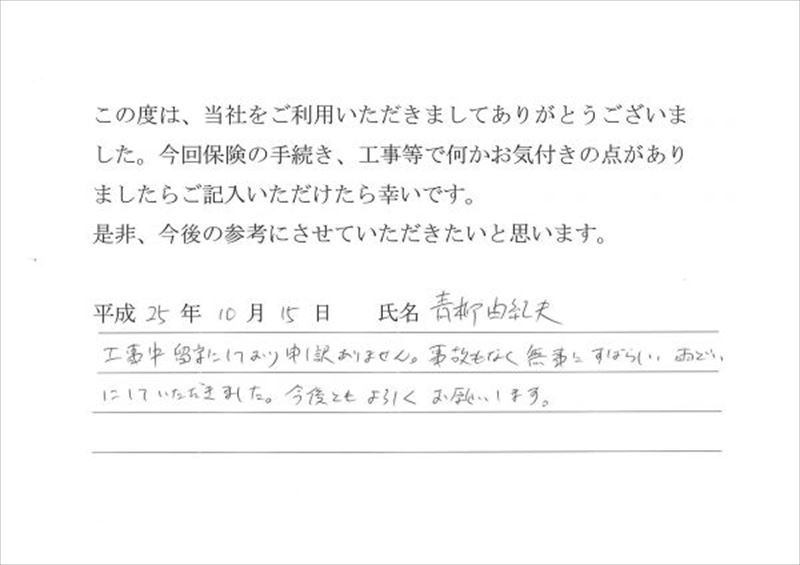 この度は、当社をご利用いただきましてありがとうございま
した。今回保険の手続き、工事等で何かお気付きの点があり
ましたらご記入いただけたら幸いです。
是非、今後の参考にさせていただきたいと思います。
平成 25 年 10 月 15 日 氏名 青柳由紀夫
工事中留守にしており申し訳ありません。事故もなく無事にすばらしい雨どい
にしていただきました。今後ともよろしくお願いします。